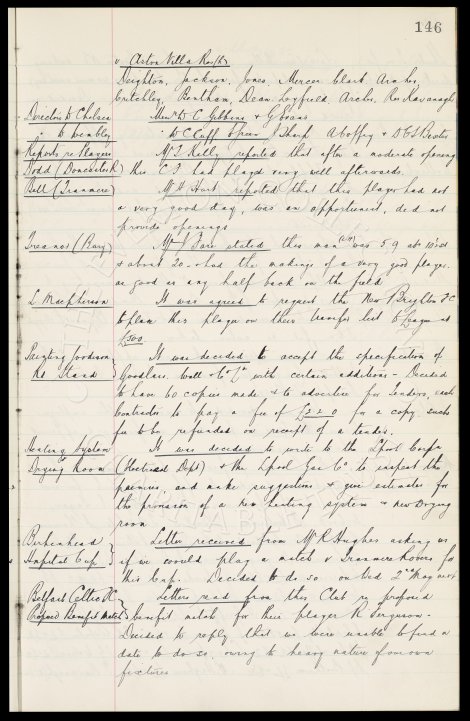 146
v. Aston Villa Res (h)
Deighton, Jackson, Jones, Mercer Clark Archer,
Critchley, Bentham, Dean, Leyfield, Archer, Res Kavanagh
Directors to Chelsea Messrs W C Gibbins & Evans
" to Wembley W C Cuff, Green, Sharp, A Coffey & Baxter
Reports re Players Mr T Kelly reported that after a moderate opening
Dodd (Doncaster R) this C.F. had played very well afterwards.
Bell (Tranmere) Mr H Hart reported that this player had not
a very good day, was an opportunist, did not
provide openings
Treanor (Bury) Mr Bare stated this man was 5.9 abt 10
& about 20 - had the makings of a very good player.
as good as any half back on the field
L. Macpherson It was agreed to request the New Brighton FC
to place this player on their transfer list to League at
£500
Painting Goodison It was decided to accept the specification of
Rd Stand Goodlass Wall & Co Ltd with certain additions - Decided
to have 60 copies made & to advertise for Tenders, each
contractor to pay a fee of £2 2 0 for a copy such
fee to be refunded on receipt of a tender.
Heating System It was decided to write to the Lpool Corpn
Drying Room (Electrical Dept) & the Lpool Gas Co to inspect the
premises, and make suggestions & give estimates for
the provision of a new heating system & new Drying
room
Birkenhead Letter received from Mr R Hughes asking us
Hospital Cup if we would play a match v Tranmere Rovers for
this Cup. Decided to do so on Wed 2nd May next
Belfast Celtic FC Letters read from this Club re proposed
Proposed Benefit Match benefit match for their player R Ferguson.
Decided to reply that we were unable to find a
date to do so, owing to heavy nature of our own
fixtures